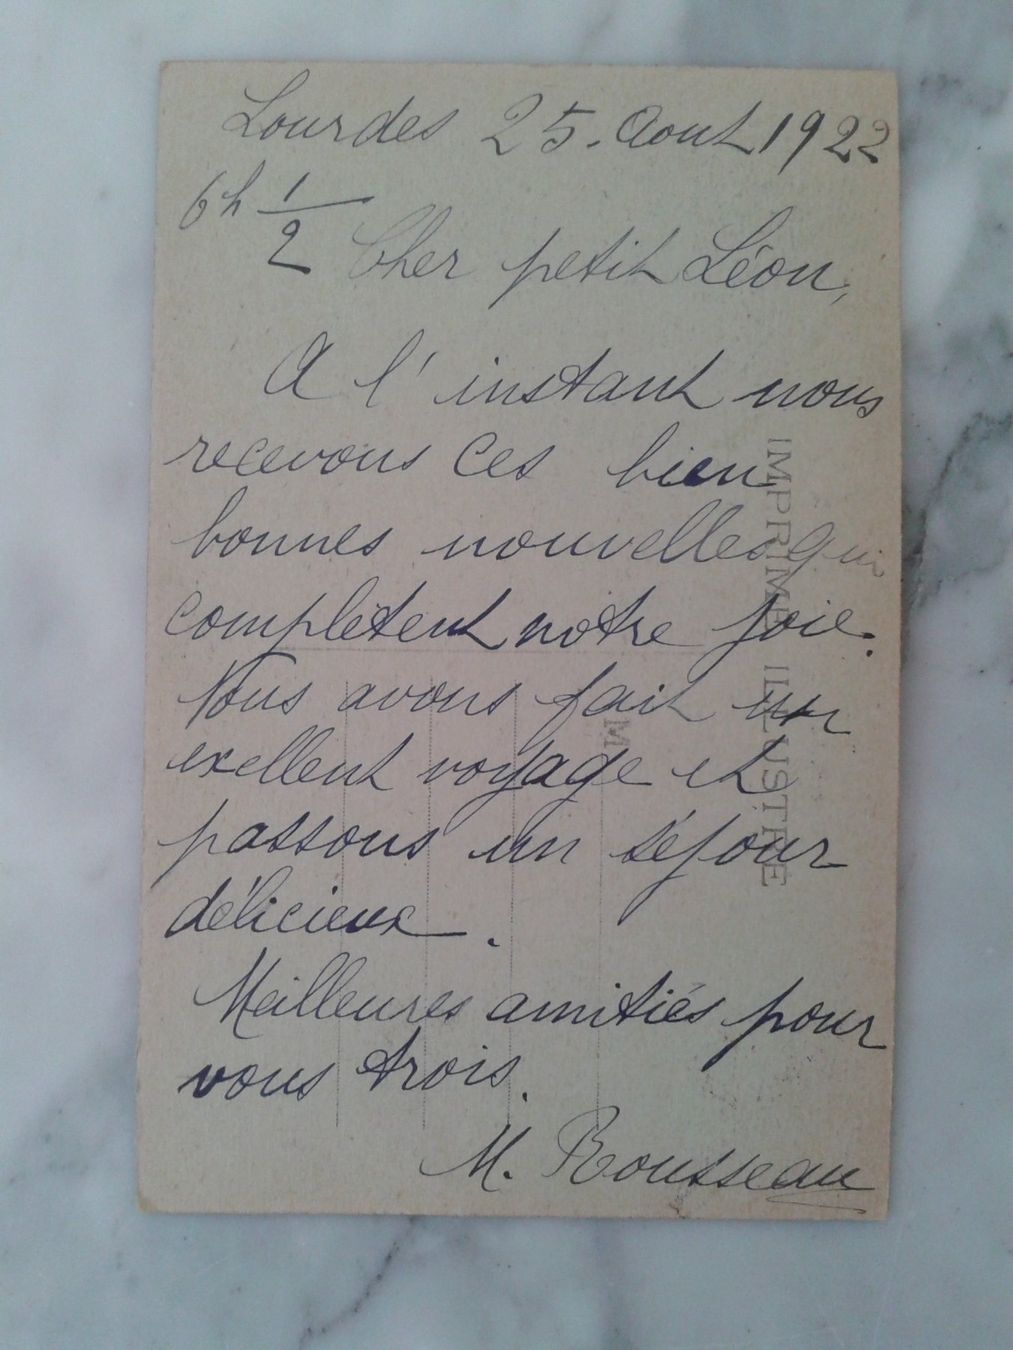 Lourdes 25. Aout 1922
6h 1/2
Cher petit Léon,
A l'instant nous
recevons ces bien
bonnes nouvelles qui
complètent notre joie.
Nous avons fait un
exellent voyage et
passons un séjour
délicieux.
Meilleures amitiés pour
vous trois.
M. Rousseau
IMPRIMÉ ILLUSTRÉ
M